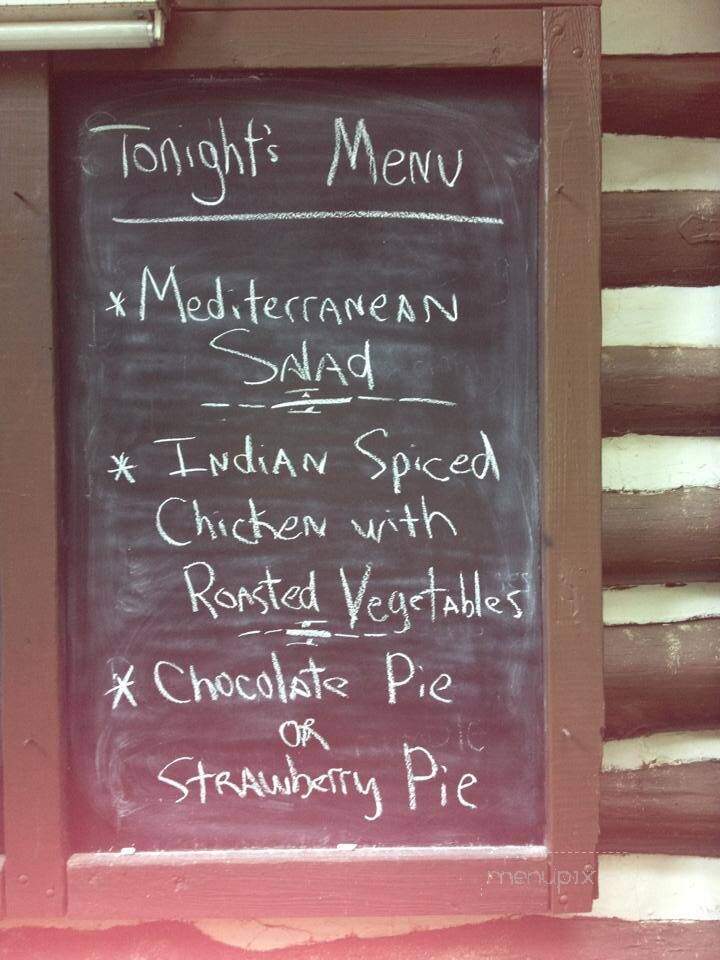 Tonight's Menu
* Mediterranean
Salad
* Indian Spiced
Chicken with
Roasted Vegetables
* Chocolate Pie
or
Strawberry Pie
menupix